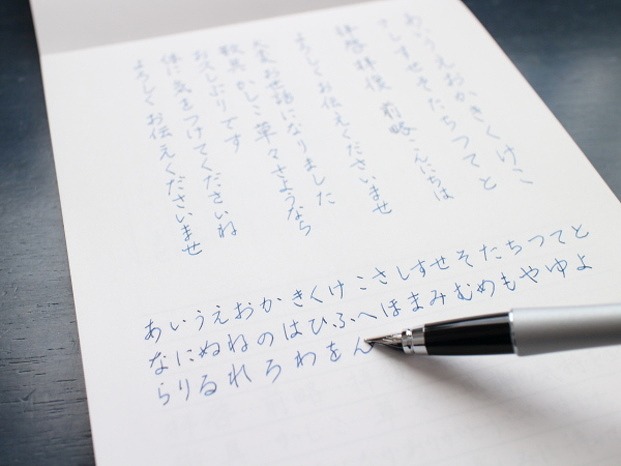 あいうえおかきくけこ
さしすせそたちつてと
拝啓 拝復 前略 こんにちは
よろしくお伝えくださいませ
大変お世話になりました
敬具 かしこ 草々 さようなら
お久しぶりです
体に気をつけてくださいね
よろしくお伝えくださいませ
あいうえおかきくけこさしすせそたちつてと
なにぬねのはひふへほまみむめもやゆよ
らりるれろわをん